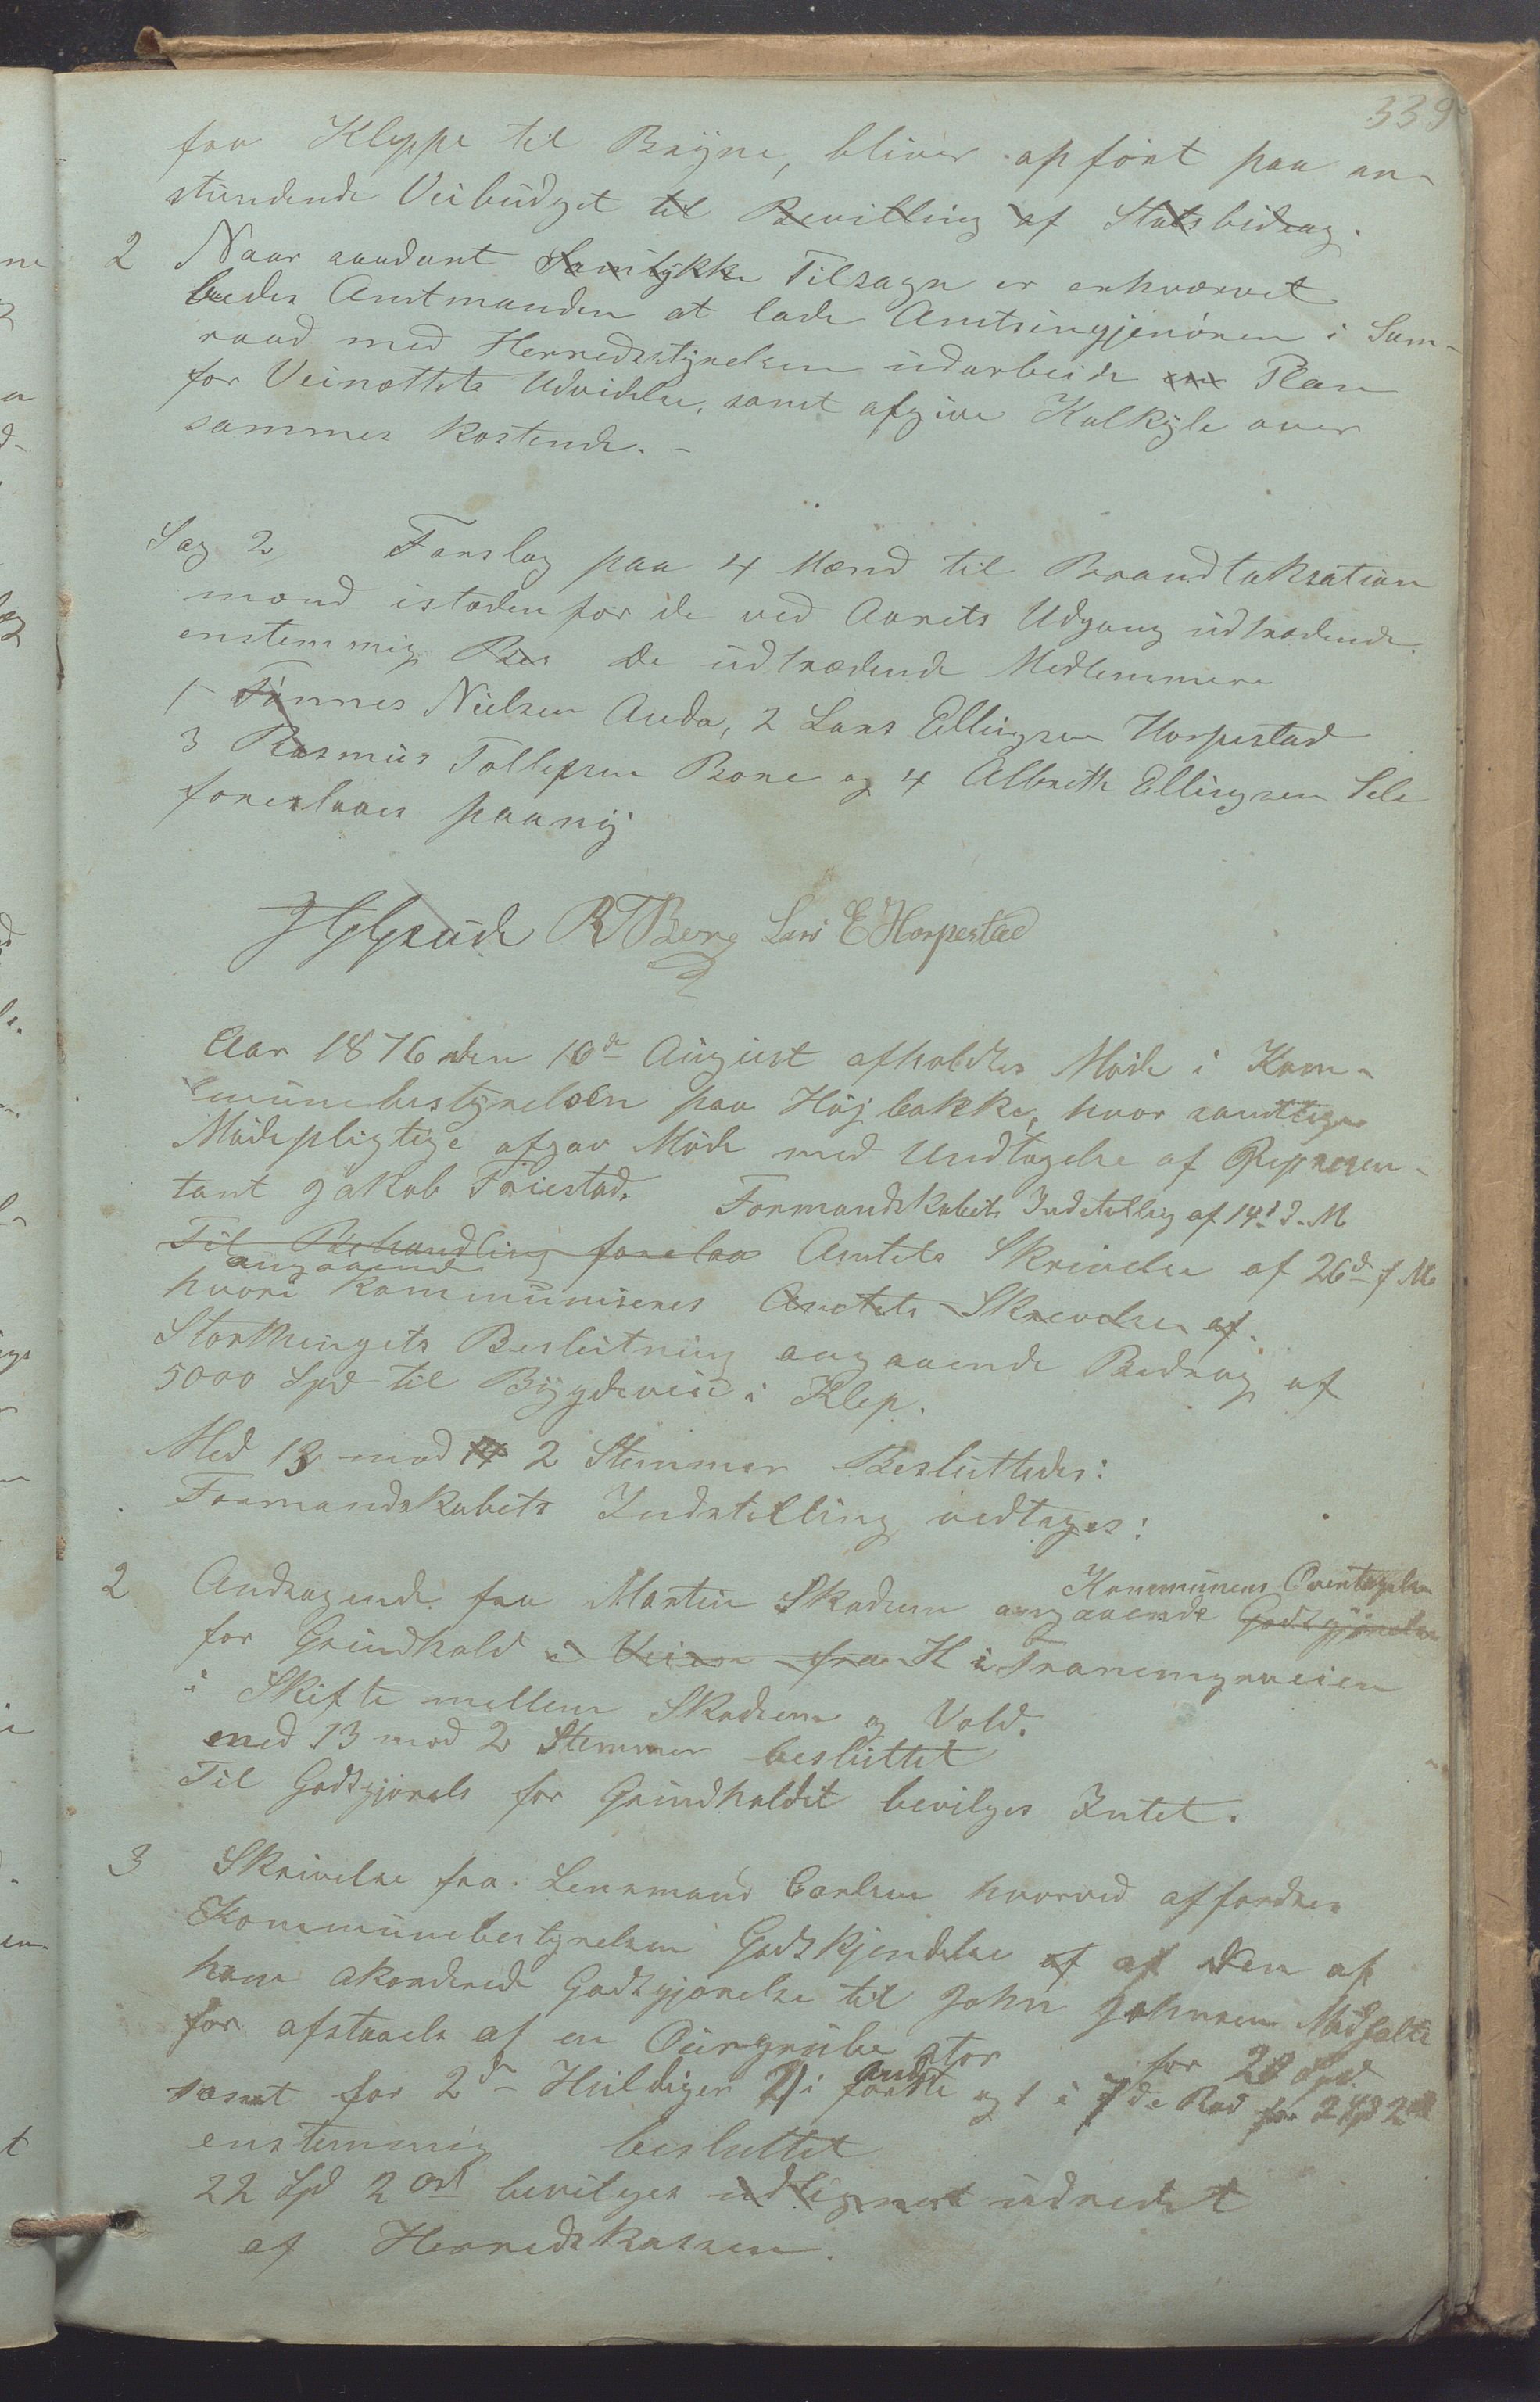 339
fra Kleppe til Bryne, bliver opført paa an-
stundende Veibudget til Bevilling af Statsbidrag.
2 Naar saadant Samtykke Tilsagn er erhvervet
bedes Amtmanden at lade Amtsingjeniøren i Sam-
raad med Herredsstyrelsen udarbeide en Plan
for Veinættets Udvidelse, samt afgive Kalkyle over
sammes Kostende. -
Sag 2 Forslag paa 4 Mænd til Brandtaksation
mænd istedenfor de ved Aarets Udgang udtrædende.
enstemmig De udtrædende Medlemmere
1 Tønnes Nielsen Anda, 2 Lars Ellingsen Horpestad
3 Rasmus Tollefsen Bore og 4 Albreth Ellingsen Sele
foreslaaes paany
R T Bore Lars E Horpestad
Aar 1876 den 16de August afholdtes Møde i Kom-
munebestyrelsen paa Højbakke, hvor samtlige
Mødepligtige afgav Møde med Undtagelse af Represen-
tant Jakob Friestad. Formandskabets Indstelling af 14d d. M
Til Behandling forelaa Amtets Skrivelse af 26d f M
angaaende
hvori kommuniseres Amtets Skrivelse af
Storthingets Beslutning angaaende Bidrag af
5000 Spd til Bygdeveie i Klep.
Med 13 mod 2 Stemmer Besluttedes:
Formandskabets Indstelling vedtages:
Kommunens Overtagelse
2 Andragende fra Martin Skadsem angaaende Godtgjørelse
for Grindhold i Veien fra H i Tranemyrveien
i Skifte mellem Skadsem og Vold.
med 13 mod 2 Stemmer besluttet
Til Godtgjørels for Grindholdet bevilges Intet.
3 Skrivelse fra Lensmand Carlsen hvorved affordres
Kommunebestyrelsen Godtkjendelse af af den af
ham akorderede Godtgjørelse til John Johnsen
for afstaaels af en stor for 20 Spd
samt for 2de 2 i første og 1 i de Rad for 2 Spd 2 ort
enstemmig besluttet
22 Spd 2 ort bevilges udlignet udredet
af Herredskassen.